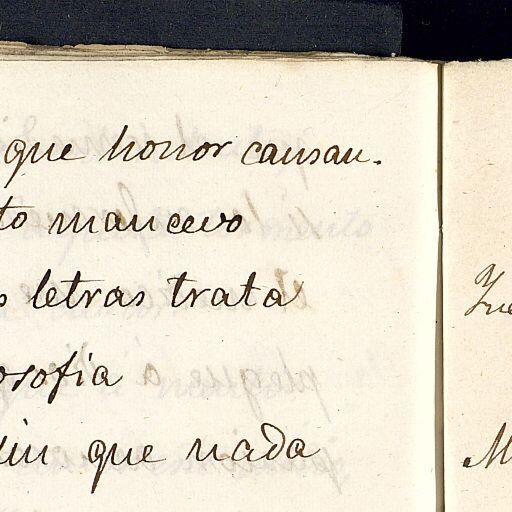 que honor causan.
to mancevo
s letras trata
osofia
que nada